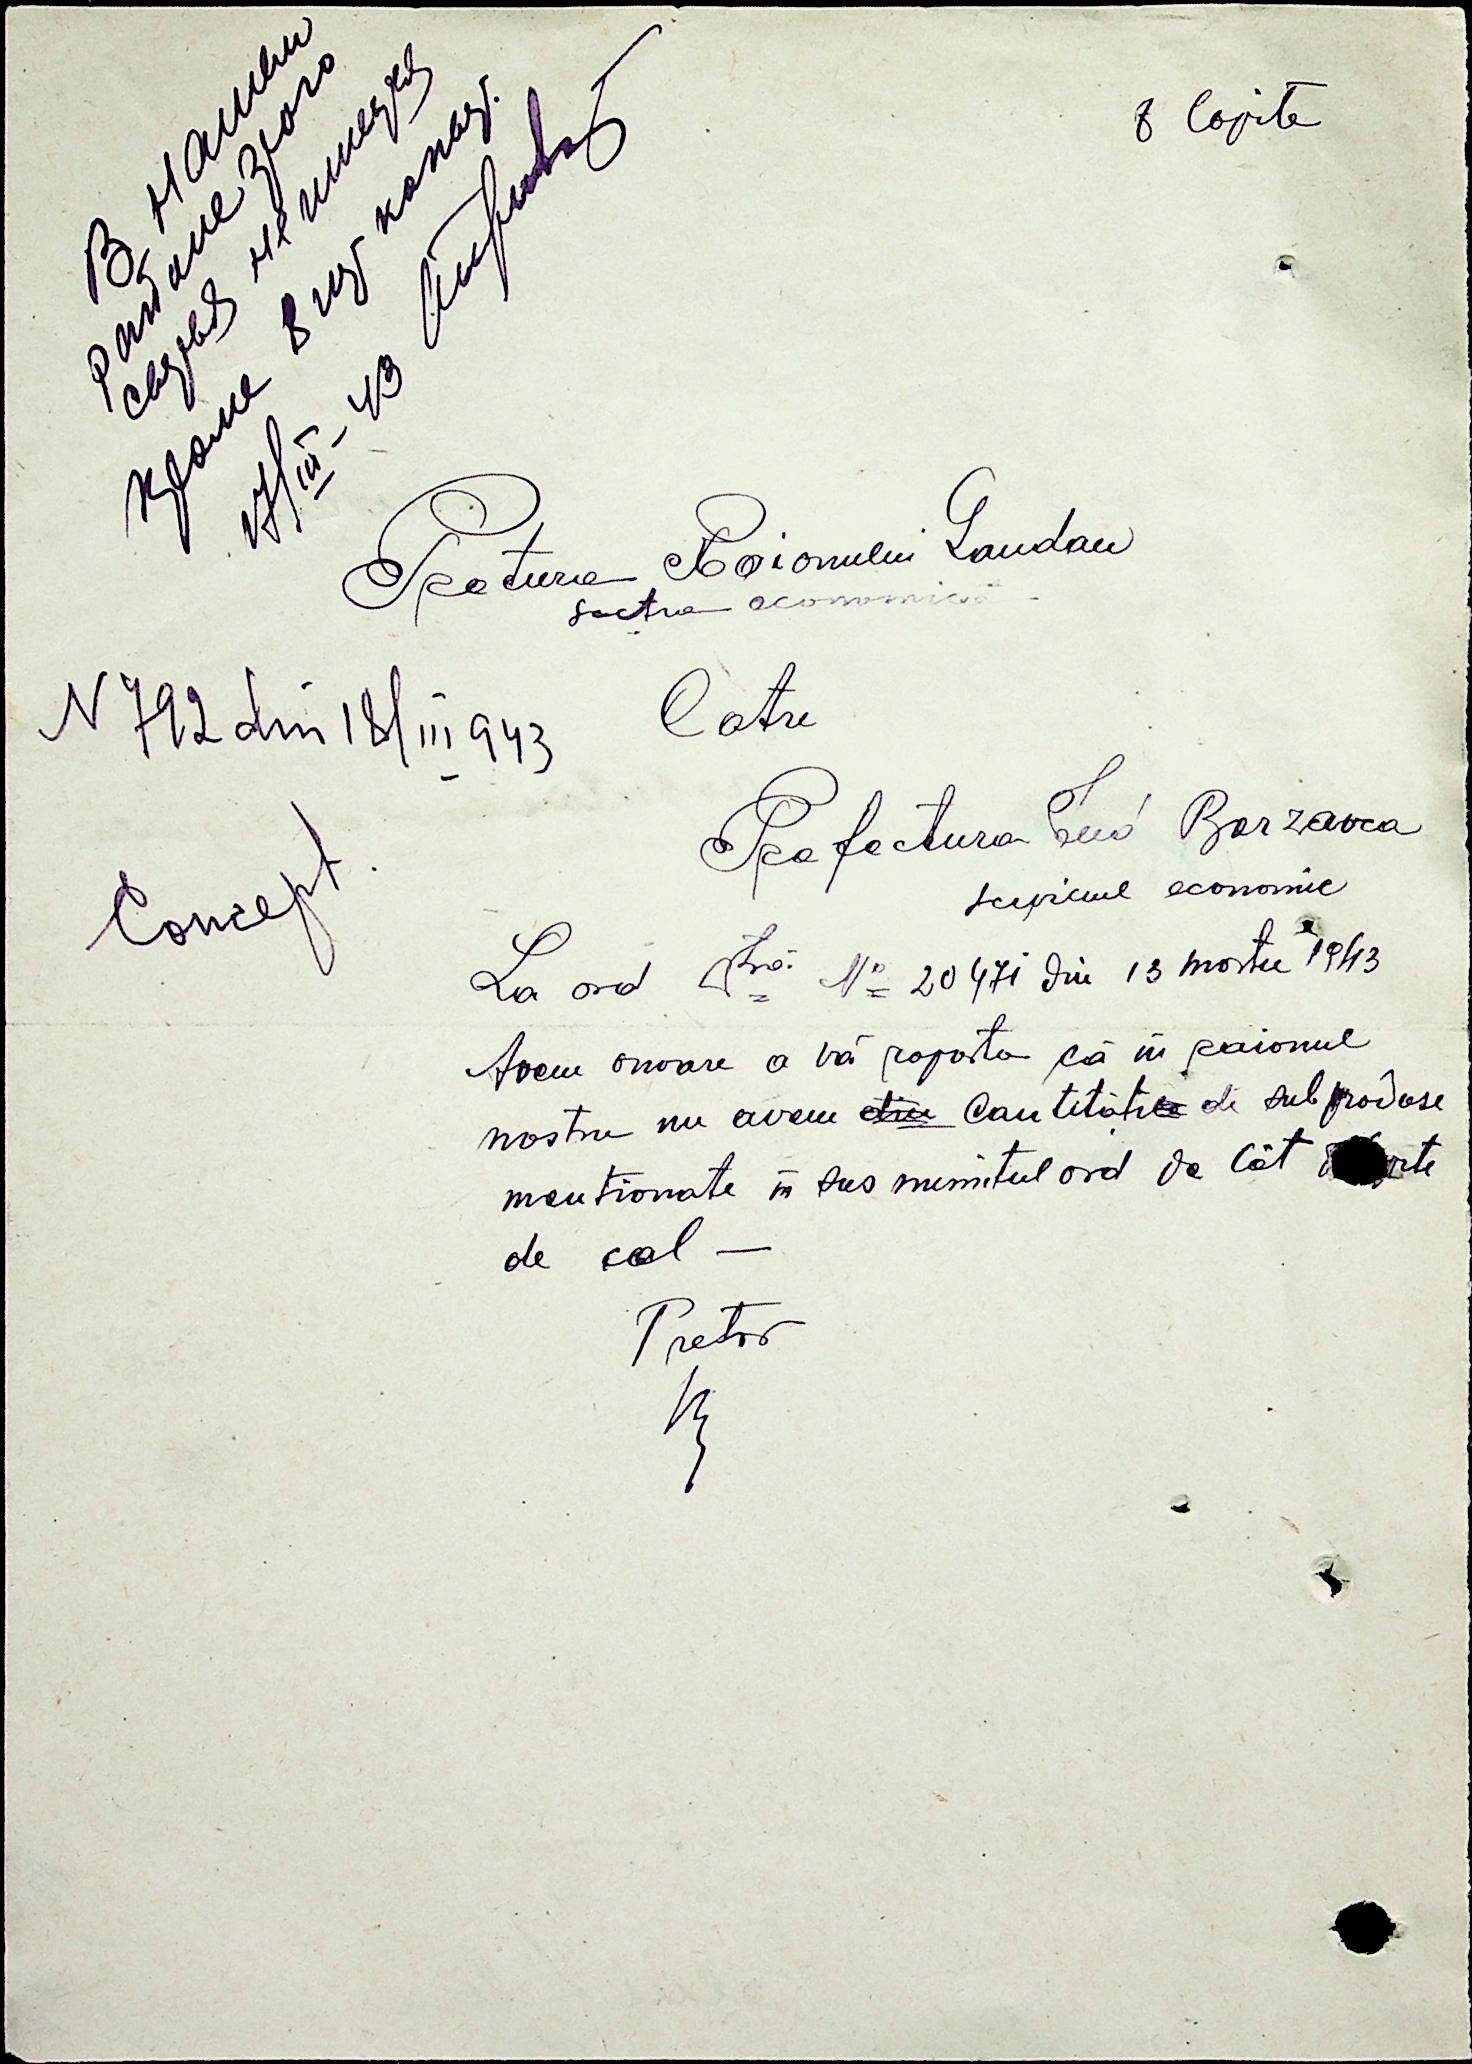 В нашем
раионе этого
сырья не имеется
кроме в из копыт.
17/III-43
8 Copite
Pretura Raionului Landau
sectia economică
N 792 din 18/III 943
Catre
Prefectura Jud Berzovca
serviciul economic
Concept.
La ord Dtră. No 20471 din 13 martie 1943
Avem onoare a vă raporta că în raionul
nostru nu avem din Cantitate de subproduse
mentionate in sus numitul ord de cât
de cal —
Pretor